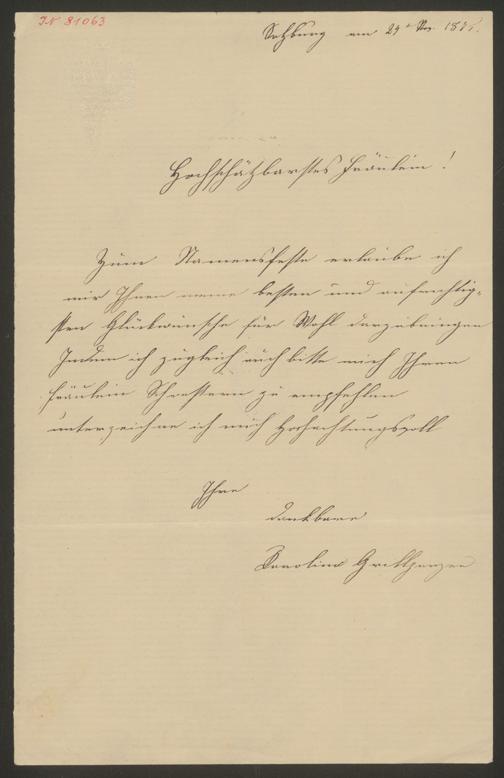 I.N 81063
Salzburg am 24t Nov. 187
Hochschätzbarstes Fräulein!
Zum Namensfeste erlaube ich
mir Ihnen meine besten und aufrichtig-
sten Glückwünsche für Wohl darzubringen
Indem ich zugleich auch bitte mich Ihren
Fräulein Schwestern zu empfehlen
unterzeichne ich mich Hochachtungsvoll
Ihre
dankbare
Karolina Grillparzer